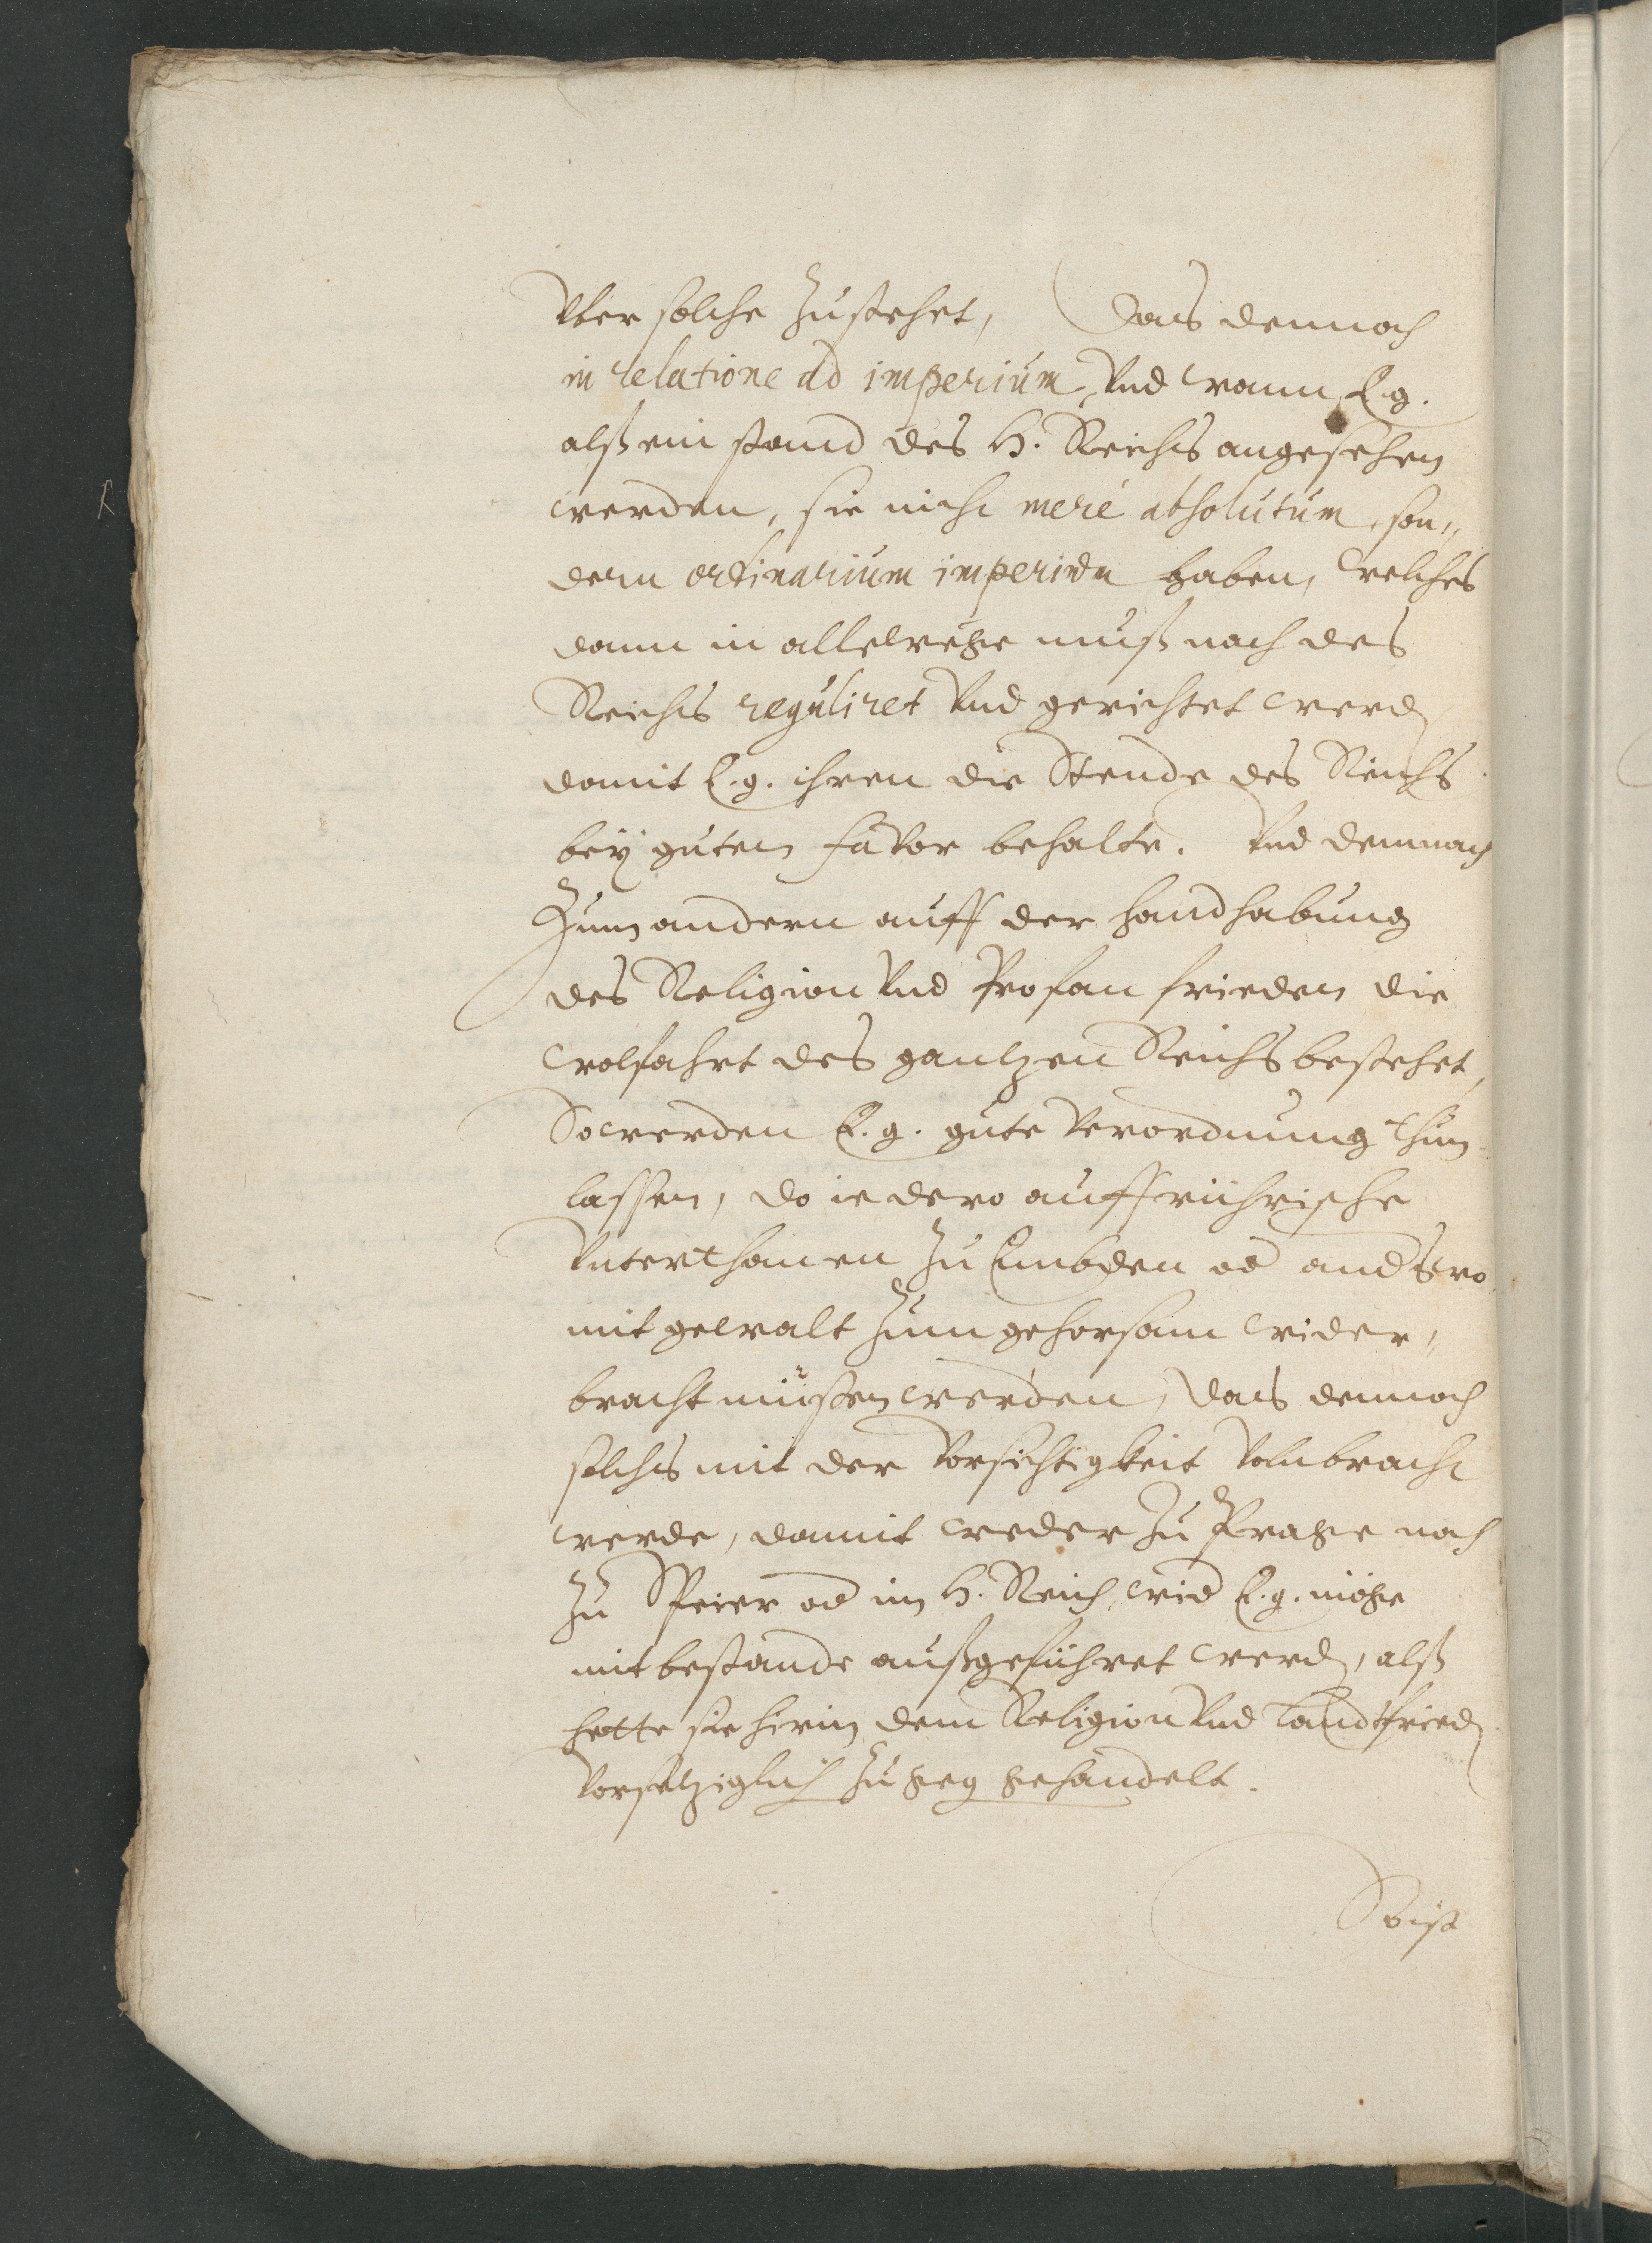 Vber solche zustehet, Das dennoch
in relatione ad imperium, Vnd wann E. g.
alß ein stand des H. Reichs angesehen
werden, sie nicht meré absolutum, son„
dern ordinarium imperium haben, welches
dann in allewege muß nach des
Reichs reguliret Vnd gerichtet werd
damit E. g. ihren die Stende des Reichs
bey gutem favor behalte. Vnd demnach
Zum andern auff der handhabung
des Religion Vnd Profan frieden die
wolfahrt des gantzen Reichs bestehet,
So werden E. g. gute Verordnung thun
lassen, do ie dero auffrührische
Vnterthanen zu Embden od anderswo
mit gewalt zum gehorsam wider„
bracht müssen werden, Das dennoch
solchs mit der Vorsichtigkeit Volnbracht
werde, damit weder zu Prage noch
zu Speier od im H. Reich, wid E. g. möge
mit bestande außgeführet werd, alß
hette sie hirin dem Religion Vnd Landtfried
Vorsetziglich zu geg gehandelt.
So ist